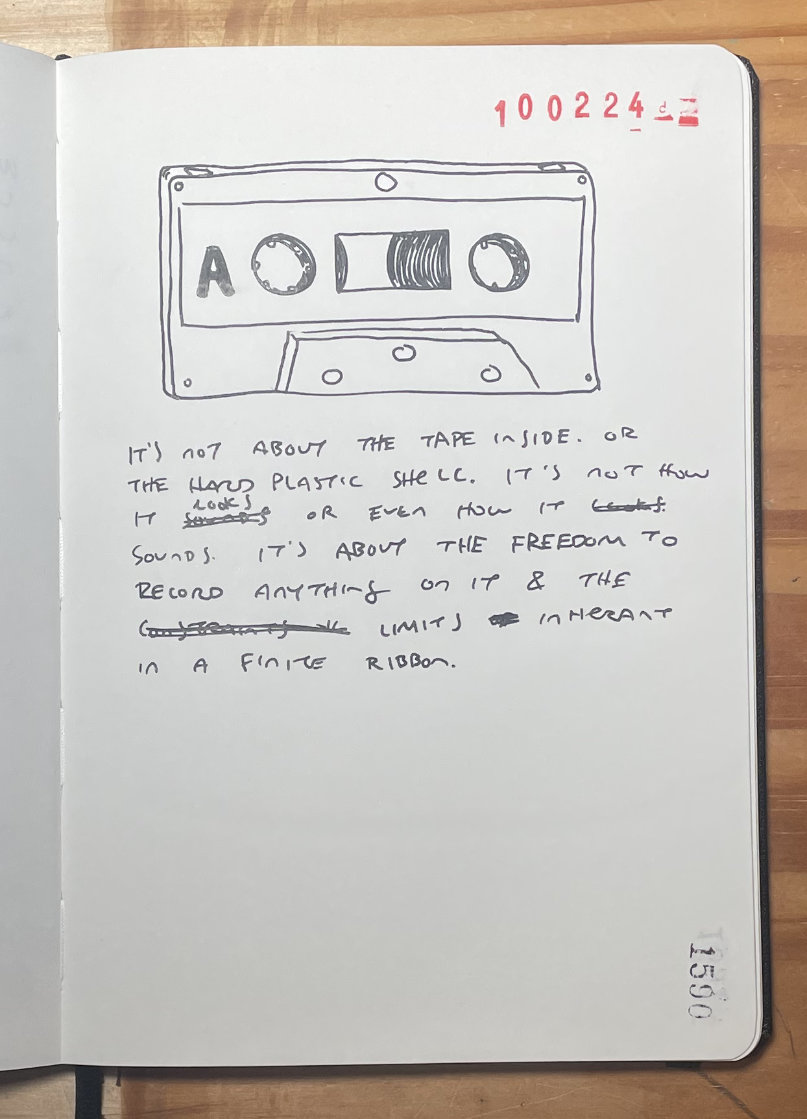 100224
A
IT'S NOT ABOUT THE TAPE INSIDE. OR
THE HARD PLASTIC SHELL. IT'S NOT HOW
IT LOOKS OR EVEN HOW IT LOOKS.
SOUNDS. IT'S ABOUT THE FREEDOM TO
RECORD ANYTHING ON IT & THE
CONSTRAINTS LIMITS INHERANT
IN A FINITE RIBBON.
1590